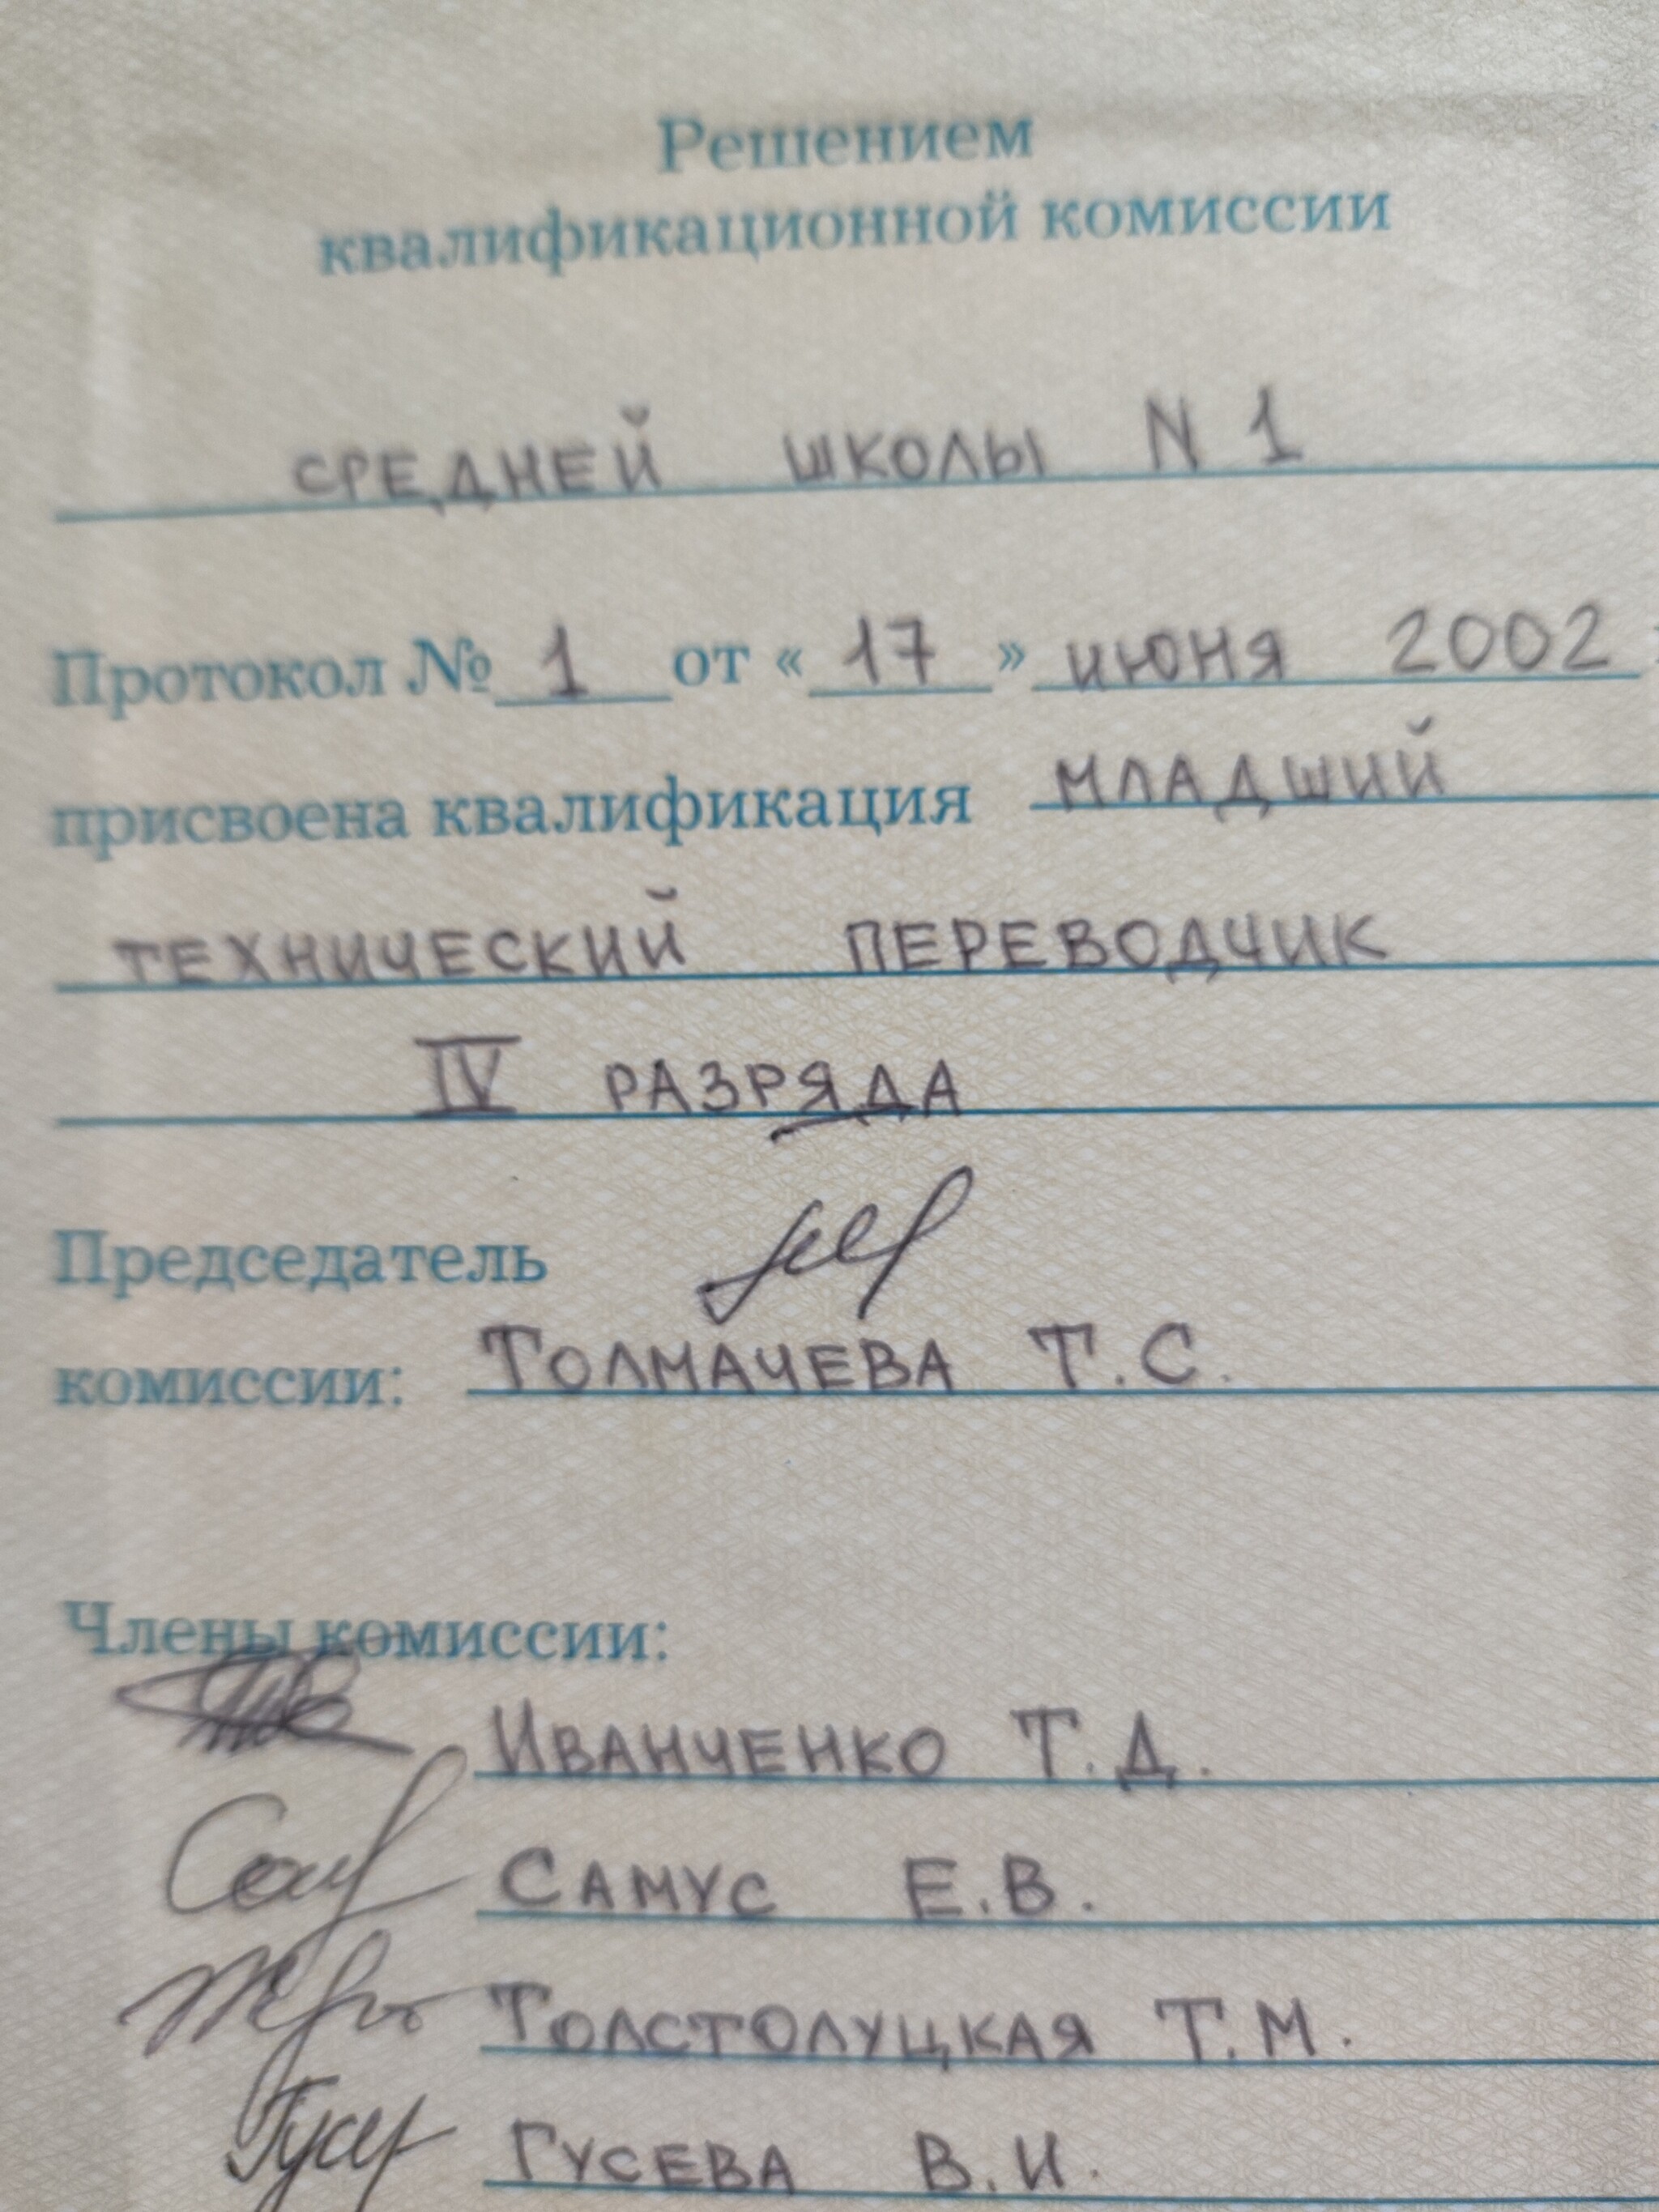 Решением
квалификационной комиссии
СРЕДНЕЙ ШКОЛЫ N 1
Протокол № 1 от « 17 » ИЮНЯ 2002
присвоена квалификация МЛАДШИЙ
ТЕХНИЧЕСКИЙ ПЕРЕВОДЧИК
IV РАЗРЯДА
Председатель
комиссии: ТОЛМАЧЕВА Т.С.
Члены комиссии:
ИВАНЧЕНКО Т.Д.
САМУС Е.В.
ТОЛСТОЛУЦКАЯ Т.М.
ГУСЕВА В.И.